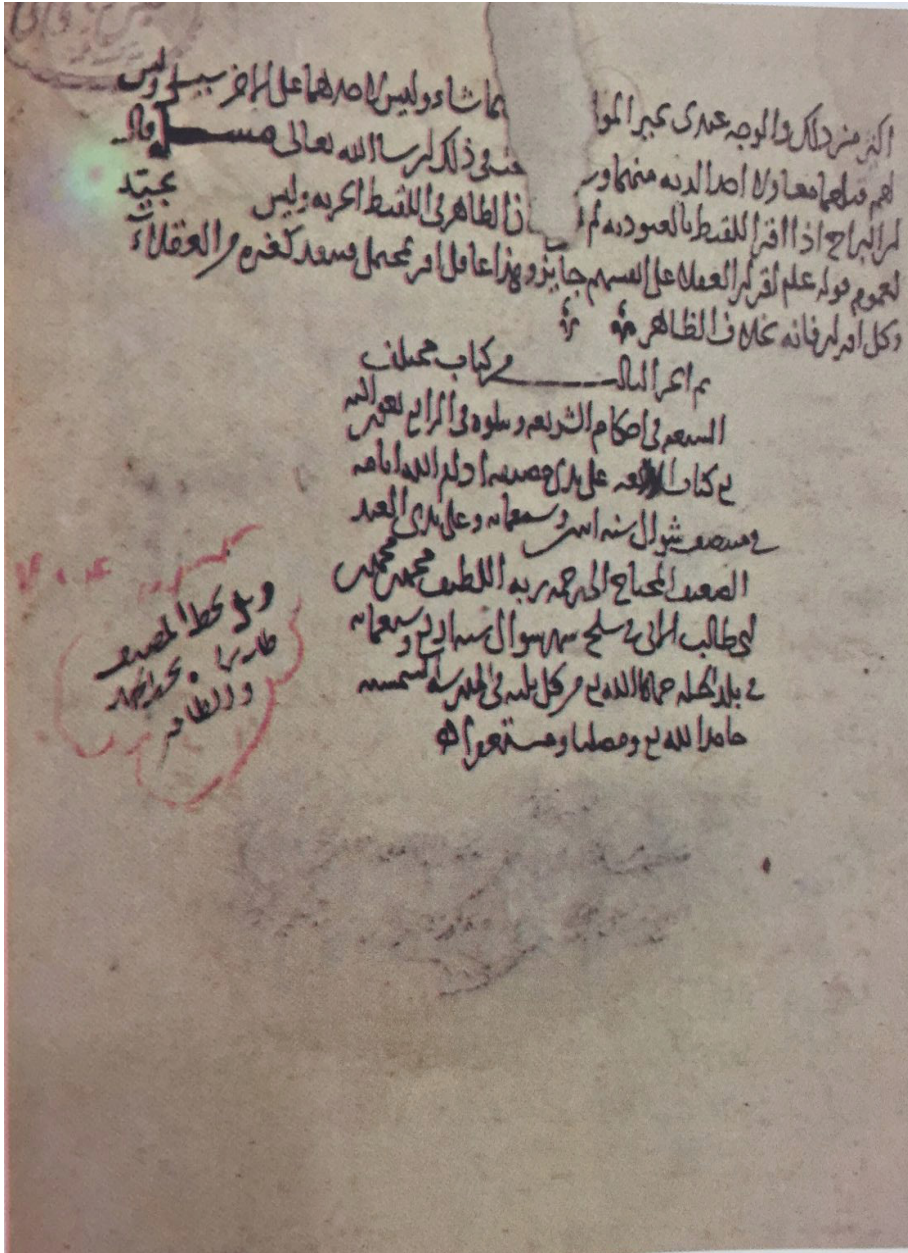 اكثر من ذلك والوجه عندي تخير الموا ما شاء وليس لاحدهما على الاخر سبيل وليس
لهم قتلهما معا ولا اخذ الدية منهما في ذلك ان شاء الله تعالى مسئلة قال
ابن البراج اذا اقر اللقيط بالعبودية لم الظاهر في اللقيط الحرية وليس بجيد
لعموم قوله علم اقرار العقلاء على انفسهم جايز وهذا عاقل اقر بمحتمل فينفذ كغيره من العقلاء
وكل اقرار فانه بخلاف الظاهر
تم الجزء الثالث من كتاب مختلف
الشيعة في احكام الشريعة ويتلوه في الرابع بعون الله
تع كتاب على يدي مصنفه ادام الله ايامه
في منتصف شوال سنة وسبعمائة وعلى يدي العبد
الضعيف المحتاج الى رحمة ربه اللطيف محمد بن محمد بن
ابي طالب في سلخ شهر شوال سنة اربع وسبعمائة
في بلد الحلة حماها الله تع من كل بلية في المدرسة الشمسية
حامدا لله تع ومصليا ومستغفرا
سنة ٧٠٤
بخط المصنف